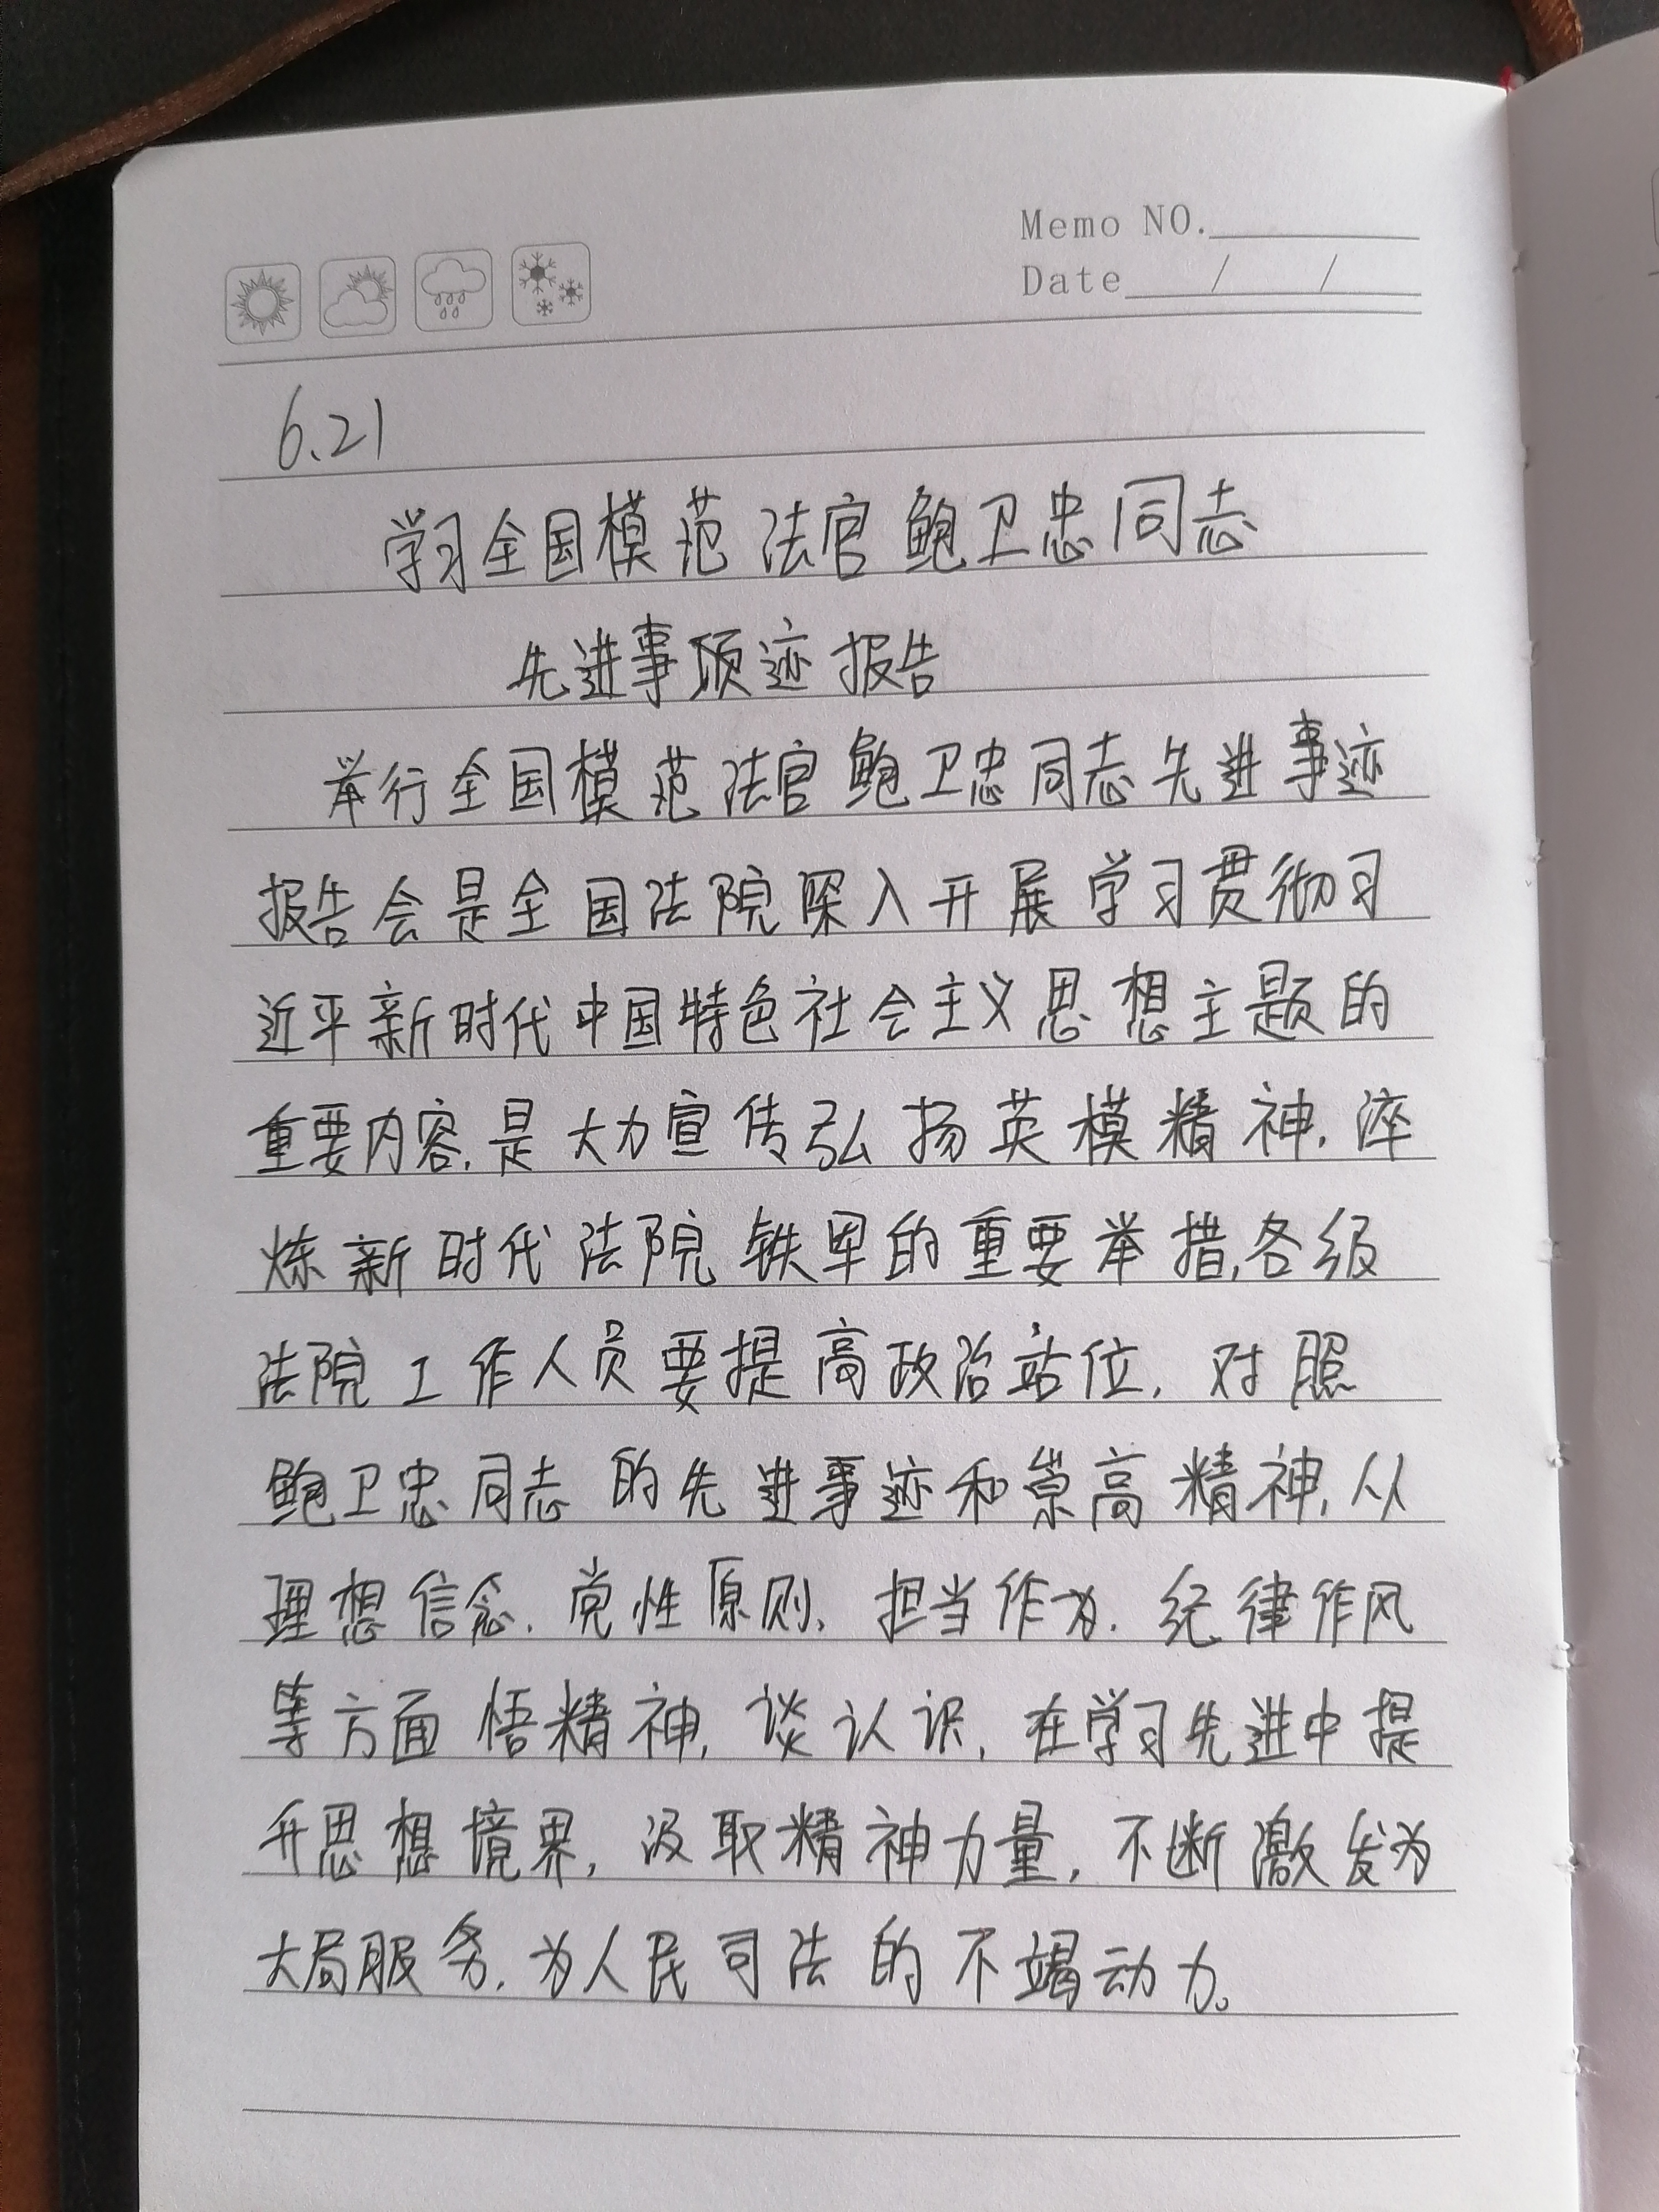 Memo NO.
Date / /
6.21
学习全国模范法官鲍卫忠同志
先进事项迹报告
举行全国模范法官鲍卫忠同志先进事迹
报告会是全国法院深入开展学习贯彻习
近平新时代中国特色社会主义思想主题的
重要内容,是大力宣传弘扬英模精神,淬
炼新时代法院铁军的重要举措,各级
法院工作人员要提高政治站位,对照
鲍卫忠同志的先进事迹和崇高精神,从
理想信念、党性原则、担当作为、纪律作风
等方面悟精神,谈认识,在学习先进中提
升思想境界,汲取精神力量,不断激发为
大局服务,为人民司法的不竭动力。